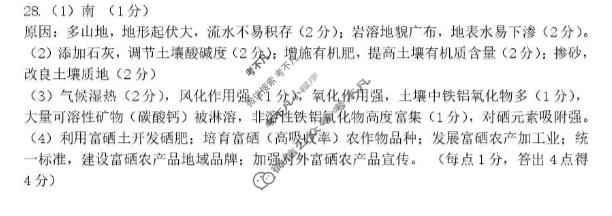 28.（1）南 （1分）
原因：多山地，地形起伏大，流水不易积存（2分）；岩溶地貌广布，地表水易下渗（2分）。
（2）添加石灰，调节土壤酸碱度（2分）；增施有机肥，提高土壤有机质含量（2分）；掺砂，
改良土壤质地（2分）
（3）气候湿热（2分），风化作用强（1分），氧化作用强，土壤中铁铝氧化物多（1分），
大量可溶性矿物（碳酸钙）被淋溶，非溶性铁铝氧化物高度富集（1分），对硒元素吸附强。
（4）利用富硒土开发硒肥；培育富硒（高吸收率）农作物品种；发展富硒农产加工业；统
一标准，建设富硒农产品地域品牌；加强对外富硒农产品宣传。（每点1分，答出4点得
4分）